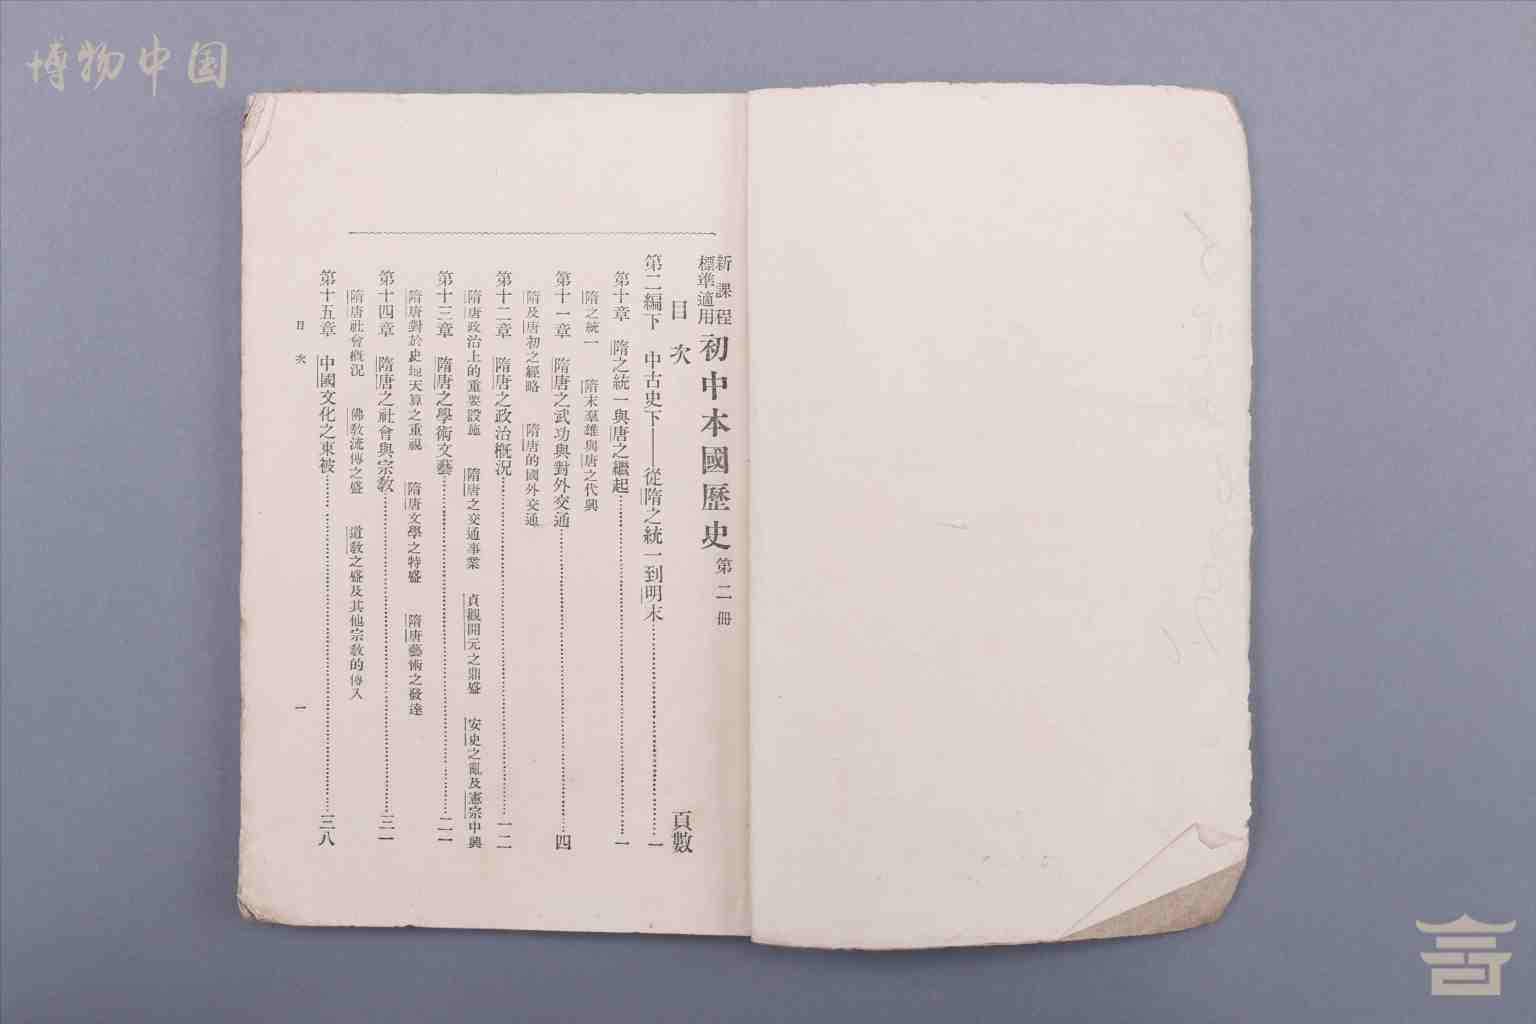 博物中国
新課程標準適用 初中本國歷史 第二冊
目次 頁數
第二編下 中古史下——從隋之統一到明末……一
第十章 隋之統一與唐之繼起……一
隋之統一 隋末羣雄與唐之代興
第十一章 隋唐之武功與對外交通……四
隋及唐初之經略 隋唐的國外交通
第十二章 隋唐之政治概況……一二
隋唐政治上的重要設施 隋唐之交通事業 貞觀開元之鼎盛 安史之亂及憲宗中興
第十三章 隋唐之學術文藝……二一
隋唐對於史地天算之重視 隋唐文學之特盛 隋唐藝術之發達
第十四章 隋唐之社會與宗教……三一
隋唐社會概況 佛教流傳之盛 道教之盛及其他宗教的傳入
第十五章 中國文化之東被……三八
目次 一